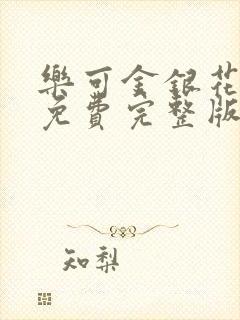 樂可金銀花
免費完整版
知梨